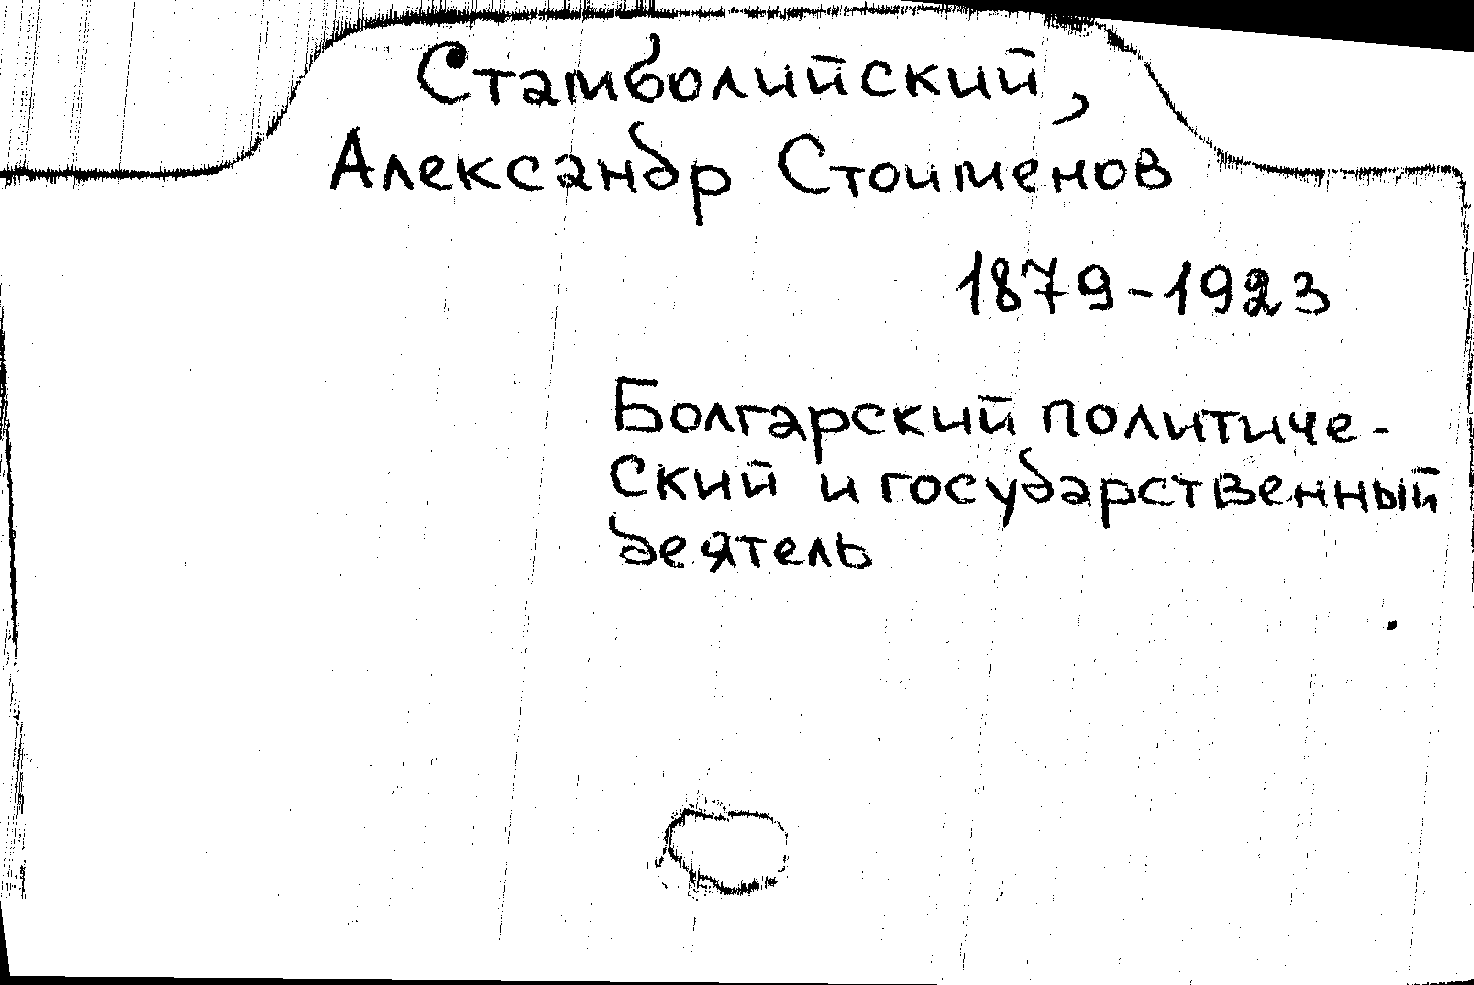 Стамболийский,
Александр Стоименов
1879-1923
Болгарский политиче-
ский и государственный
деятель